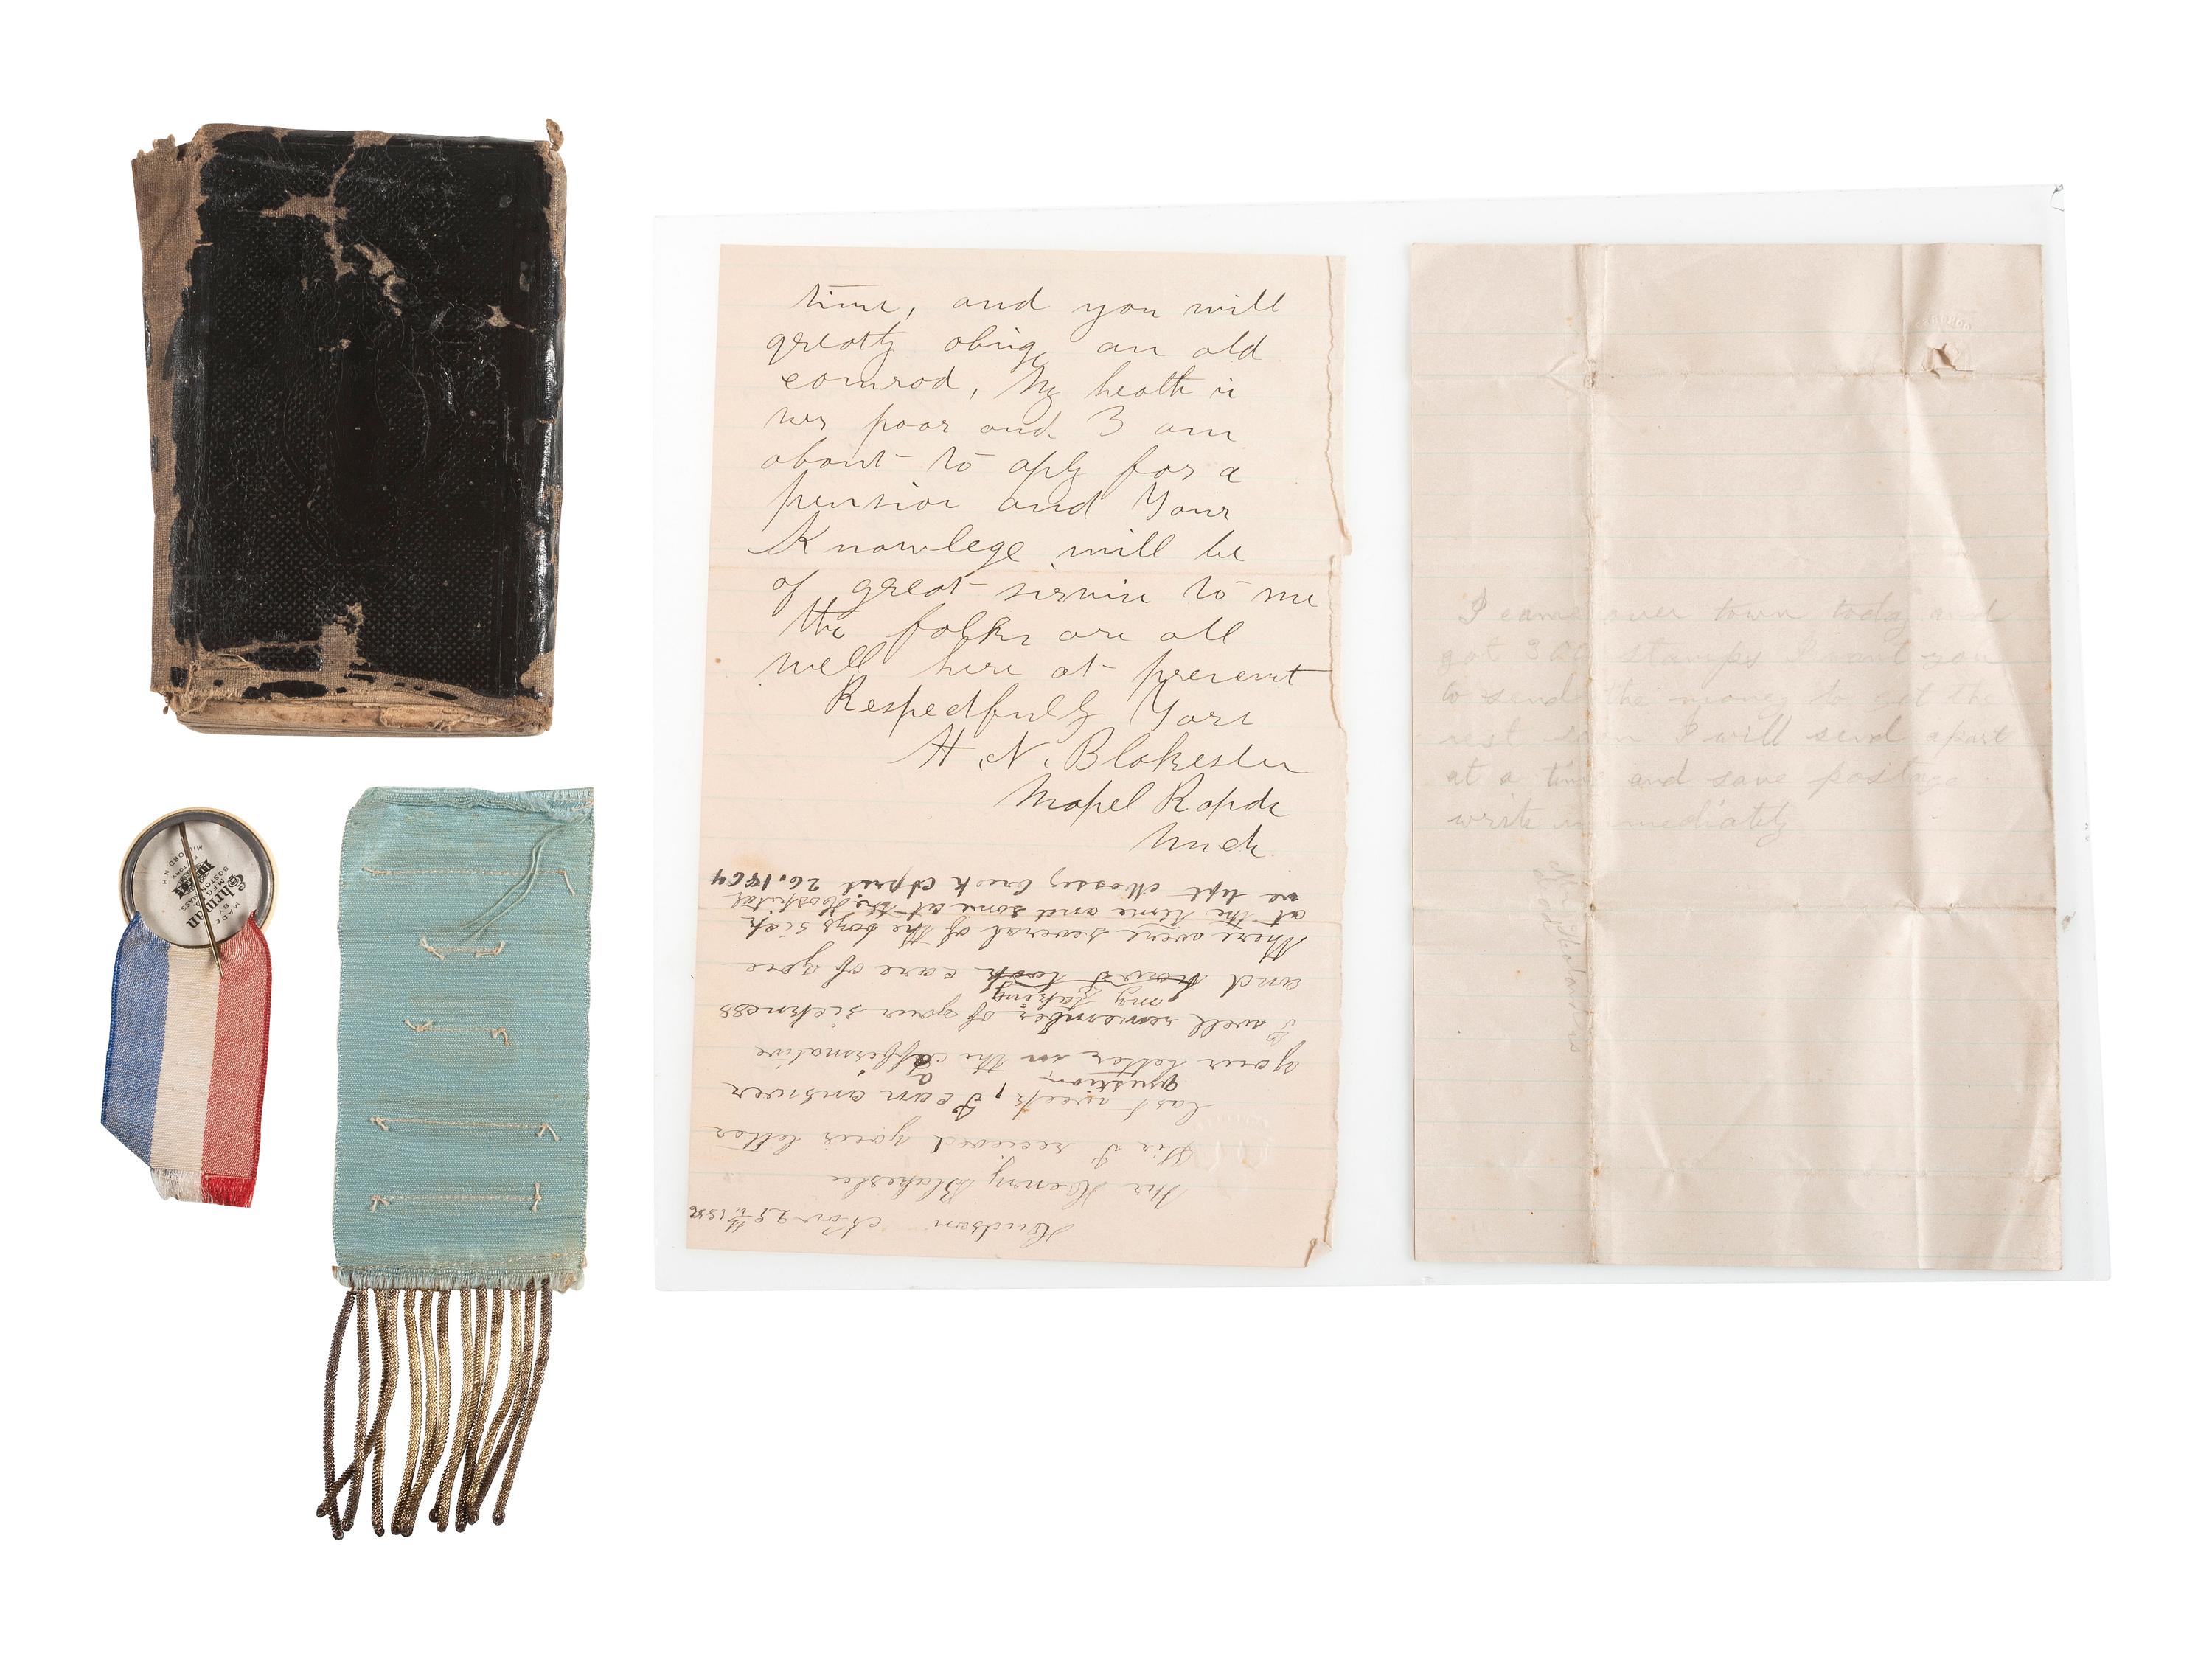 time, and you will
greatly obige an old
comrod, My heath is
very poor and I am
about to aply for a
pension and Your
Knowlege will be
of great service to me
the folks are all
well here at present
Respedfully Yors
H. N. Blakeslee
Mapel Rapids
Mich
Hudson Nov 25th
Mr Henry Blakeslee
Sir I recieved your letter
last week, I can answer
question
your letter in the affirmative
I well remember of your sickness
my taking
and how I took care of you
There were several of the boys sick
at the time and some at the Hospital
we left Mossy Creek April 26. 1864
I came over town today and
got 3 stamps I want you
to send the money to get the
rest I will send apart
at a time and save postage
write immediately
MADE BY
Ehrman
MFG.
BOSTON MASS
FACTORY
MILFORD N.H.